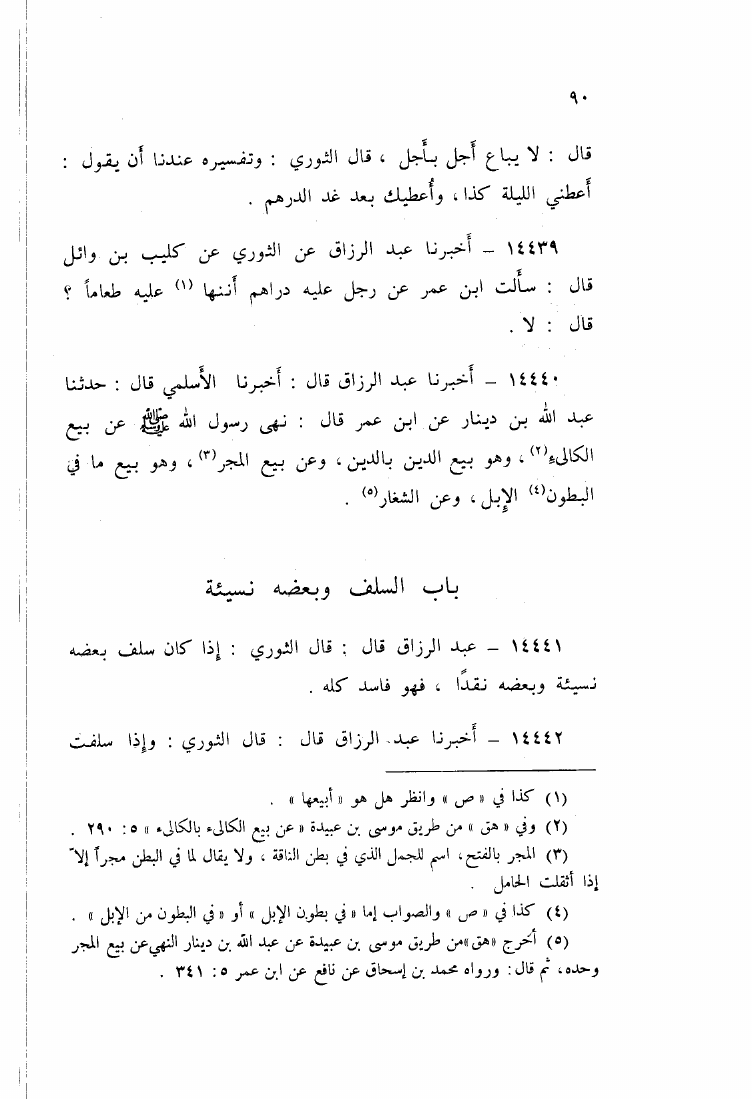 ٩٠
قال : لا يباع أجل بأجل ، قال الثوري : وتفسيره عندنا أن يقول :
أعطني الليلة كذا ، وأُعطيك بعد غد الدرهم .
١٤٤٣٩ – أخبرنا عبد الرزاق عن الثوري عن كليب بن وائل
قال : سألت ابن عمر عن رجل عليه دراهم أننها (١) عليه طعاماً ؟
قال : لا .
١٤٤٤٠ – أخبرنا عبد الرزاق قال : أخبرنا الأسلمي قال : حدثنا
عبد الله بن دينار عن ابن عمر قال : نهى رسول الله ﷺ عن بيع
الكالىء(٢) ، وهو بيع الدين بالدين ، وعن بيع المجر(٣) ، وهو بيع ما في
البطون(٤) الإبل ، وعن الشغار(٥) .
باب السلف وبعضه نسيئة
١٤٤٤١ – عبد الرزاق قال : قال الثوري : إذا كان سلف بعضه
نسيئة وبعضه نقدًا ، فهو فاسد كله .
١٤٤٤٢ – أخبرنا عبد الرزاق قال : قال الثوري : وإذا سلفت
(١) كذا في « ص » وانظر هل هو « أبيعها » .
(٢) وفي « هق » من طريق موسى بن عبيدة « عن بيع الكالىء بالكالىء » ٥ : ٢٩٠ .
(٣) المجر بالفتح ، اسم للجمل الذي في بطن الناقة ، ولا يقال لما في البطن مجراً إلاّ
إذا أثقلت الحامل .
(٤) كذا في « ص » والصواب إما « في بطون الإبل » أو « في البطون من الإبل » .
(٥) أخرج «هق»من طريق موسى بن عبيدة عن عبد الله بن دينار النهي‌عن بيع المجر
وحده ، ثم قال : ورواه محمد بن إسحاق عن نافع عن ابن عمر ٥ : ٣٤١ .